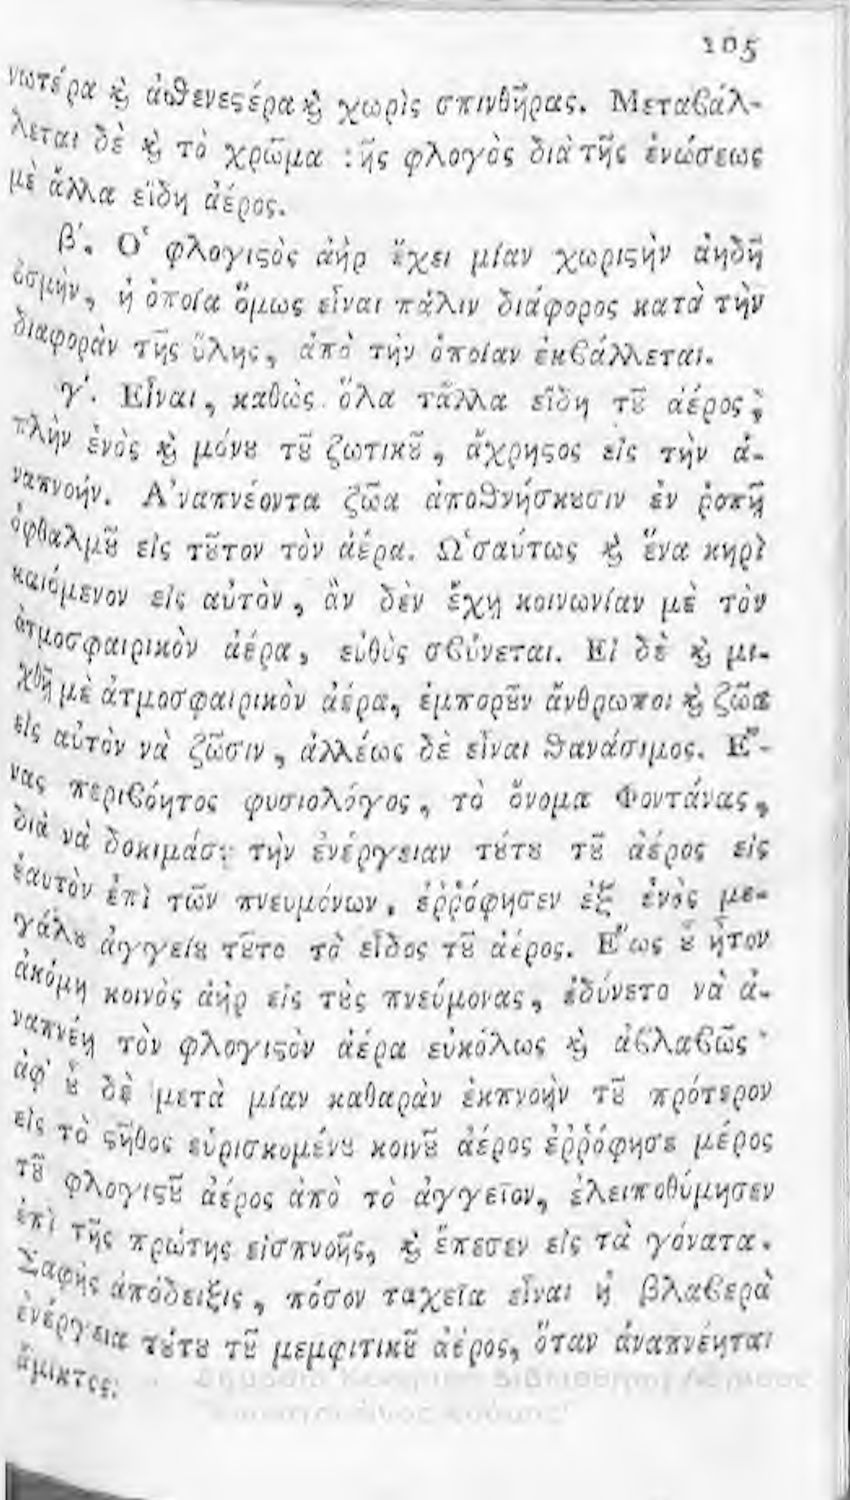 105
νωτέρα ϗ̀ ἀσθενεϛέρα ϗ̀ χωρὶς σπινθῆρας. Μεταβάλ-
λεται δὲ ϗ̀ τὸ χρῶμα τῆς φλογὸς διὰ τῆς ἑνώσεως
μὲ ἄλλα εἴδη ἀέρος.
β΄. Ὁ φλογιϛὸς ἀὴρ ἔχει μίαν χωριϛὴν ἀηδῆ
ὀσμὴν, ἡ ὁποία ὅμως εἶναι πάλιν διάφορος κατὰ τὴν
διαφορὰν τῆς ὕλης, ἀπὸ τὴν ὁποίαν ἐκβάλλεται.
γ΄. Εἶναι, καθὼς ὅλα τἄλλα εἴδη τȣ͂ ἀέρος,
πλὴν ἑνὸς ϗ̀ μόνȣ τȣ͂ ζωτικȣ͂, ἄχρηϛος εἰς τὴν ἀ-
ναπνοήν. Ἀναπνέοντα ζῶα ἀποθνήσκȣσιν ἐν ῥοπῇ
ὀφθαλμȣ͂ εἰς τȣ͂τον τὸν ἀέρα. Ὡσαύτως ϗ̀ ἕνα κηρὶ
καιόμενον εἰς αὐτὸν, ἂν δὲν ἔχῃ κοινωνίαν μὲ τὸν
ἀτμοσφαιρικὸν ἀέρα, εὐθὺς σβύνεται. Εἰ δὲ ϗ̀ μι-
χθῇ μὲ ἀτμοσφαιρικὸν ἀέρα, ἐμπορȣ͂ν ἄνθρωποι ϗ̀ ζῶα
εἰς αὐτὸν νὰ ζῶσιν, ἀλλέως δὲ εἶναι θανάσιμος. Ἕ-
νας περιβόητος φυσιολόγος, τὸ ὄνομα Φοντάνας,
διὰ νὰ δοκιμάσῃ τὴν ἐνέργειαν τȣ́τȣ τȣ͂ ἀέρος εἰς
ἑαυτὸν ἐπὶ τῶν πνευμόνων, ἐῤῥόφησεν ἐξ ἑνὸς με-
γάλȣ ἀγγείȣ τȣ͂το τὸ εἶδος τȣ͂ ἀέρος. Ἕως ȣ̔͂ ἦτον
ἀκόμη κοινὸς ἀὴρ εἰς τȣ̀ς πνεύμονας, ἐδύνετο νὰ ἀ-
ναπνέῃ τὸν φλογιϛὸν ἀέρα εὐκόλως ϗ̀ ἀβλαβῶς·
ἀφ' ȣ̔͂ δὲ μετὰ μίαν καθαρὰν ἐκπνοὴν τȣ͂ πρότερον
εἰς τὸ ϛῆθος εὑρισκομένȣ κοινȣ͂ ἀέρος ἐῤῥόφησε μέρος
τȣ͂ φλογιϛȣ͂ ἀέρος ἀπὸ τὸ ἀγγεῖον, ἐλειποθύμησεν
ἐπὶ τῆς πρώτης εἰσπνοῆς, ϗ̀ ἔπεσεν εἰς τὰ γόνατα.
Σαφὴς ἀπόδειξις, πόσον ταχεῖα εἶναι ἡ βλαβερὰ
ἐνέργεια τȣ́τȣ τȣ͂ μεμφιτικȣ͂ ἀέρος, ὅταν ἀναπνέηται
ἄμικτος.